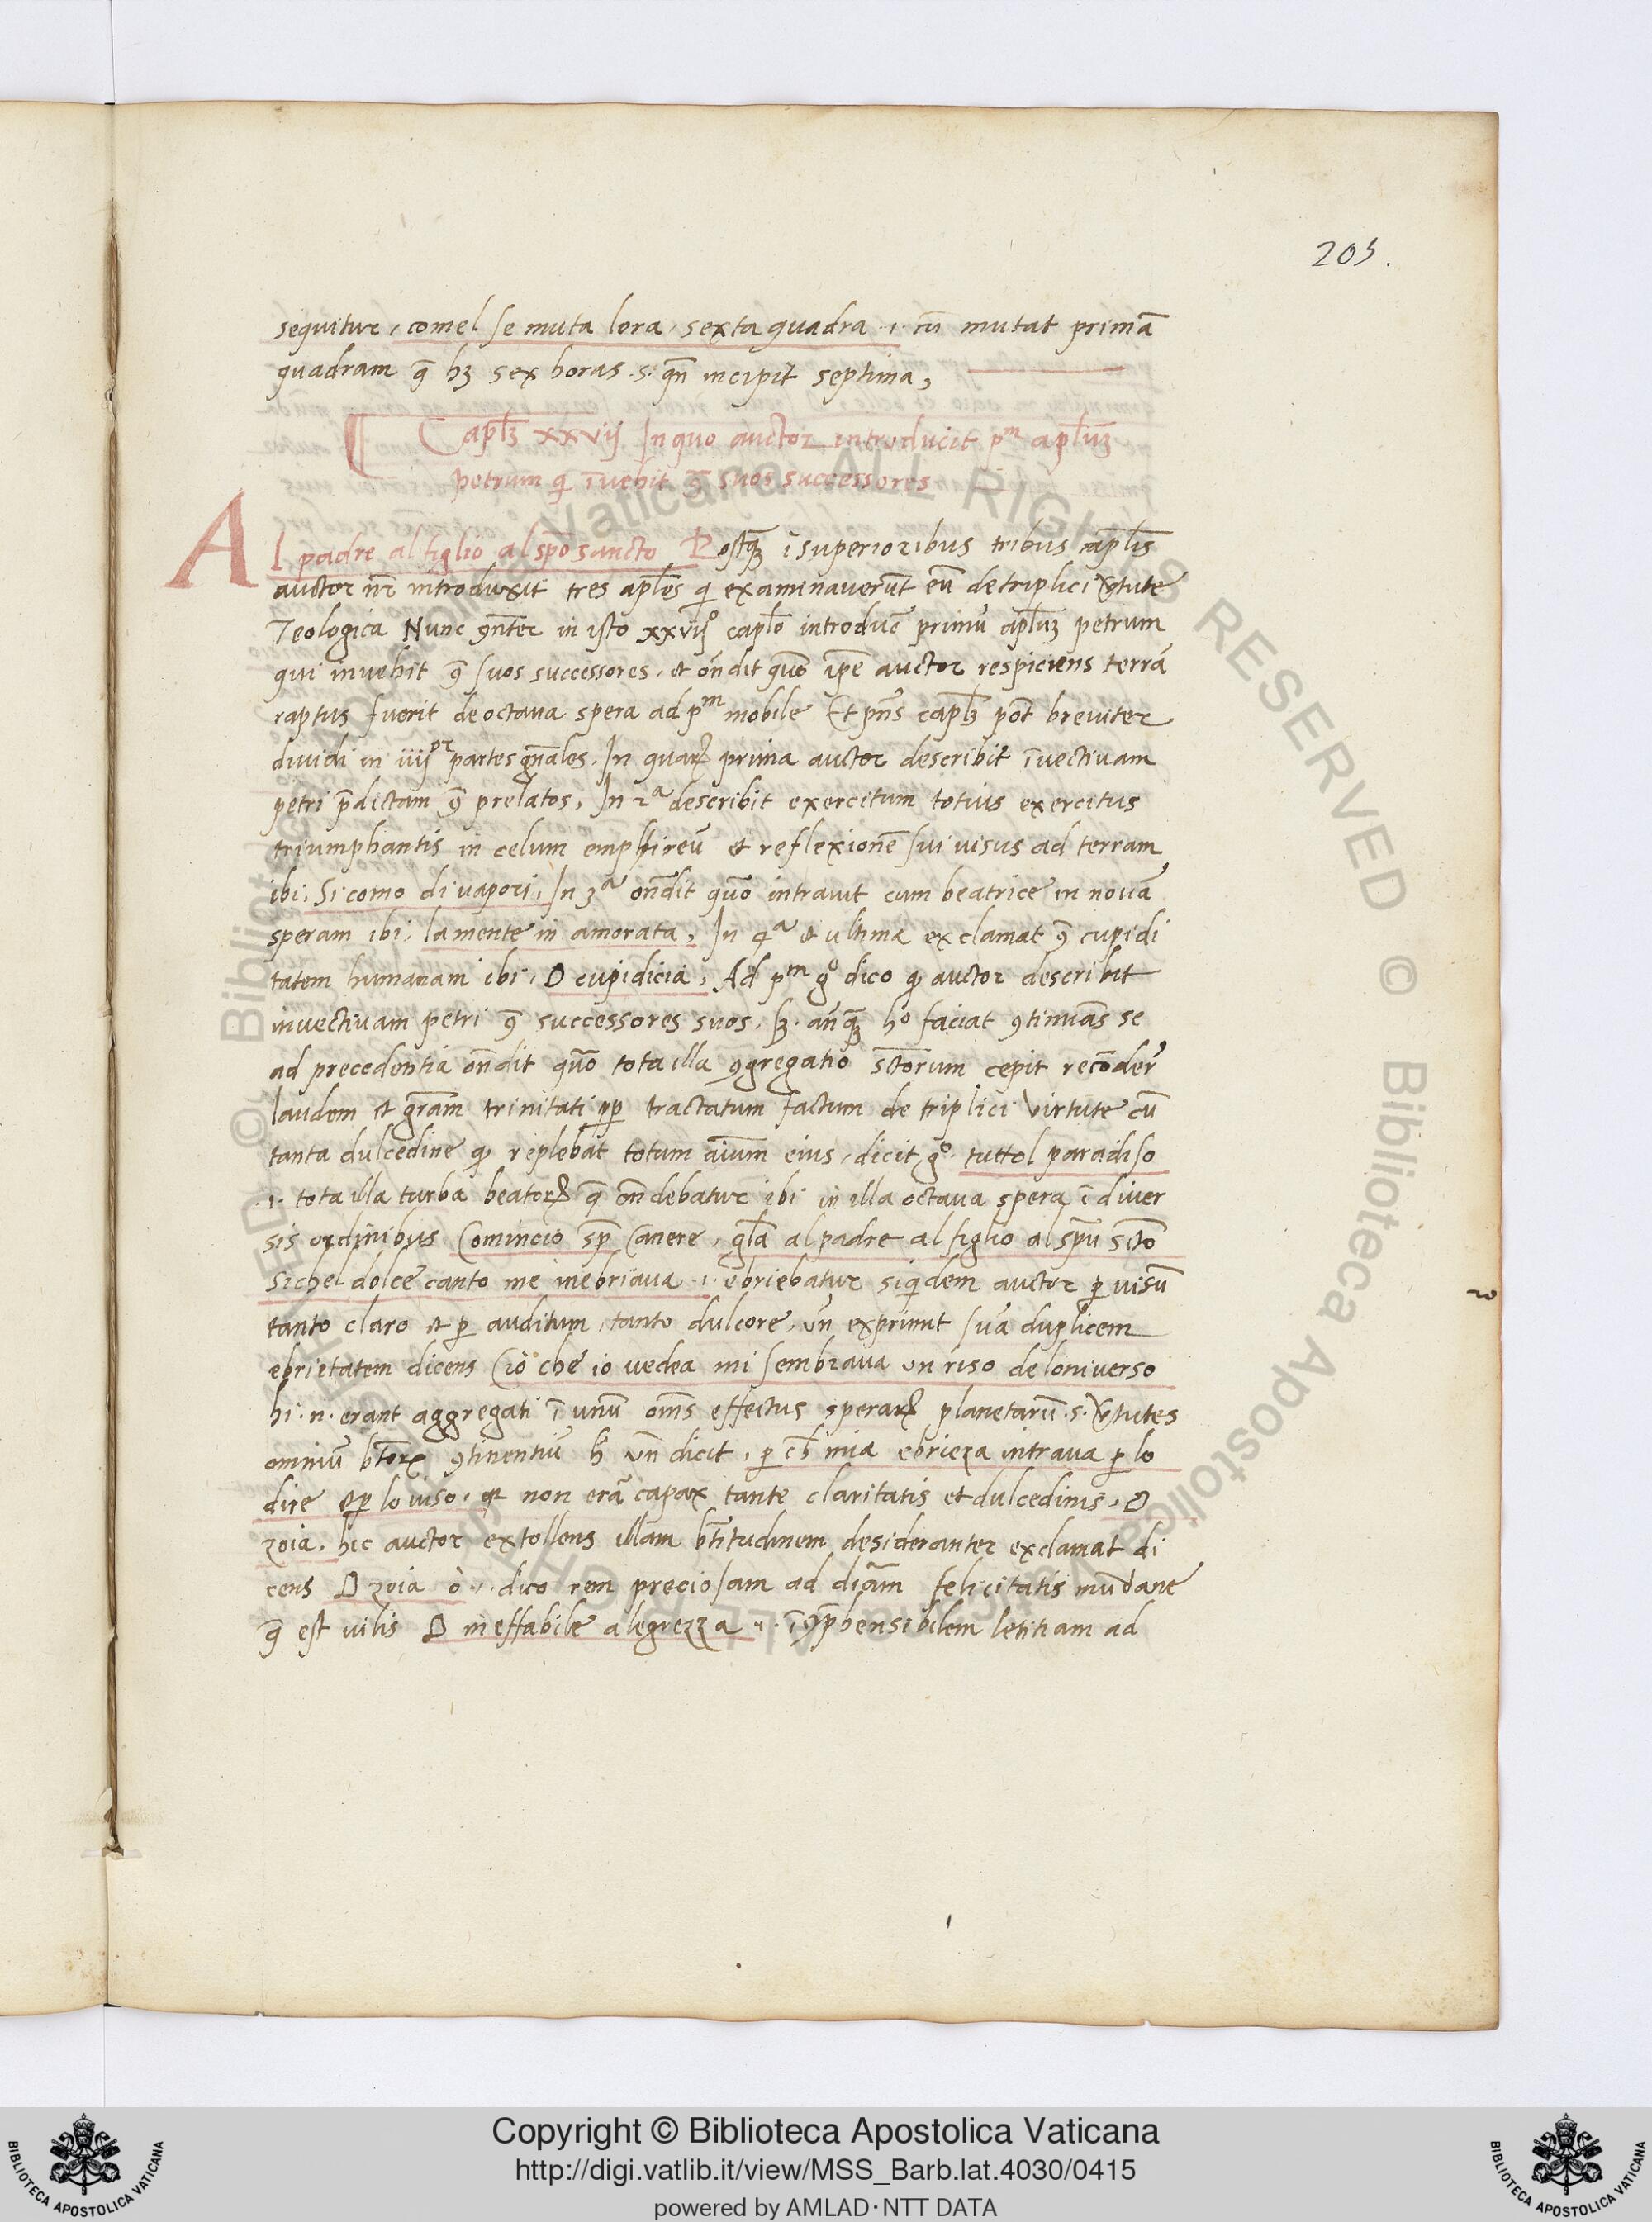 203.
sequitur, comel se muta lora, sexta quadra .i. cū mutat primā
quadram q̄ hꝫ sex horas .s. qn̄ incipit septima,
Capl̄ꝫ xxvij In quo auctor introducit pᵐ apl̄uꝫ
petrum q̇ īvehit 9̄ suos successores
Al padre al figlio al sp̄o sancto Postq̄ꝫ i superioribus tribus capl̄is
auctor nr̄ introduxit tres apl̄os q̇ examinaverūt eū de triplici v̄tute
Teologica Nunc 9n̄ter in isto xxvijº caplo introduc̄ primū apl̄uꝫ petrum
qui invehit 9̄ suos successores, et on̄dit quō ip̄e auctor respiciens terrā
raptus fuerit de octava spera ad pᵐ mobile Et pn̄s capl̄ꝫ pōt breviter
dividi in iiijᵒʳ partes gn̄ales. In quaꝝ prima auctor describit īvectivam
petri p̄dictam 9̄ prelatos, In 2ᵃ describit exercitum totius exercitus
triumphantis in celum emphireū et reflexionē sui visus ad terram
ibi, Si como di vapori, In 3ᵃ on̄dit quō intravit cum beatrice in novā
speram ibi, la mente in amorata, In 4ᵃ et ultima exclamat 9̄ cupidi
tatem humanam ibi, O cupidicia, Ad pᵐ gº dico ꝙ auctor describit
invectivam petri 9̄ successores suos. sꝫ. an̄q̄ꝫ hº faciat 9tinuās se
ad precedentia on̄dit quō tota illa 9gregatio sc̄torum cepit recōder̄
laudem et grām trinitati ꝓp tractatum factum de triplici virtute cū
tanta dulcedine ꝙ replebat totum aīum eius, dicit gº. tuttol paradiso
.i. tota illa turba beatoꝝ q̄ on̄debatur ibi in illa octava spera ī diver
sis ordinibus Comincio sp̄ Canere, gl̄a al padre al figlio al spū sc̄to
Sichel dolce canto me inebriava .i. ebriebatur siq̇dem auctor ꝑ visū
tanto claro et ꝑ auditum tanto dulcore, vn̄ exprimit suā duplicem
ebrietatem dicens Ciò che io vedea mi sembrava un riso de loniverso
hi .n. erant aggregati ī unū om̄s effectus speraꝝ planetarū .s. v̄tutes
omniū bt̄oꝝ 9tinentiū h̄ vn̄ dicit, ꝑ ch̄ mia ebrieza intrava ꝑ lo
dire et ꝑ lo viso, qꝛ non erā capax tante claritatis et dulcedinis, O
zoia. hic auctor extollens illam bt̄itudinem desideranter exclamat di
cens O zoia o .i. dico rem preciosam ad diām felicitatis mūdane
q̄ est vilis O ineffabile alegrezza .i. ī9p̄hensibilem letitiam ad
Copyright © Biblioteca Apostolica Vaticana
http://digi.vatlib.it/view/MSS_Barb.lat.4030/0415
powered by AMLAD·NTT DATA
BIBLIOTECA APOSTOLICA VATICANA
BIBLIOTECA APOSTOLICA VATICANA